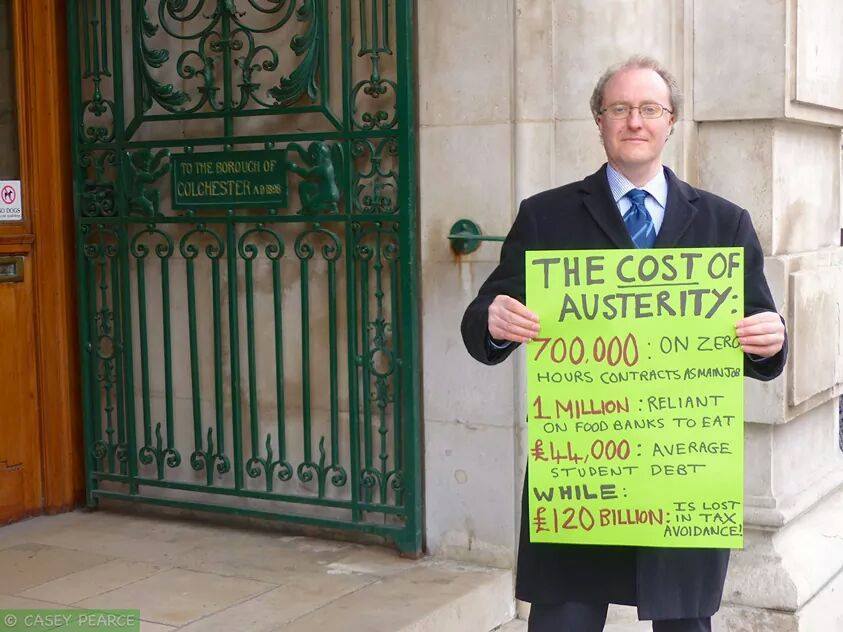 TO THE BOROUGH OF
COLCHESTER
NO DOGS
THE COST OF
AUSTERITY:
700,000: ON ZERO
HOURS CONTRACTS AS MAIN JOB
1 MILLION: RELIANT
ON FOOD BANKS TO EAT
£44,000: AVERAGE
STUDENT DEBT
WHILE:
£120 BILLION: IS LOST
IN TAX
AVOIDANCE!
© CASEY PEARCE